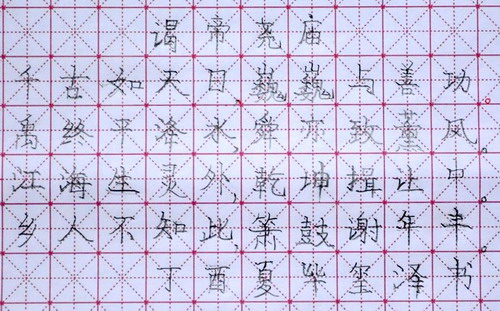 谒帝尧庙
千古如天日,巍巍与善功。
禹终平洚水,舜亦致薰风。
江海生灵外,乾坤揖让中。
乡人不知此,箫鼓谢年丰。
丁酉夏毕玺泽书